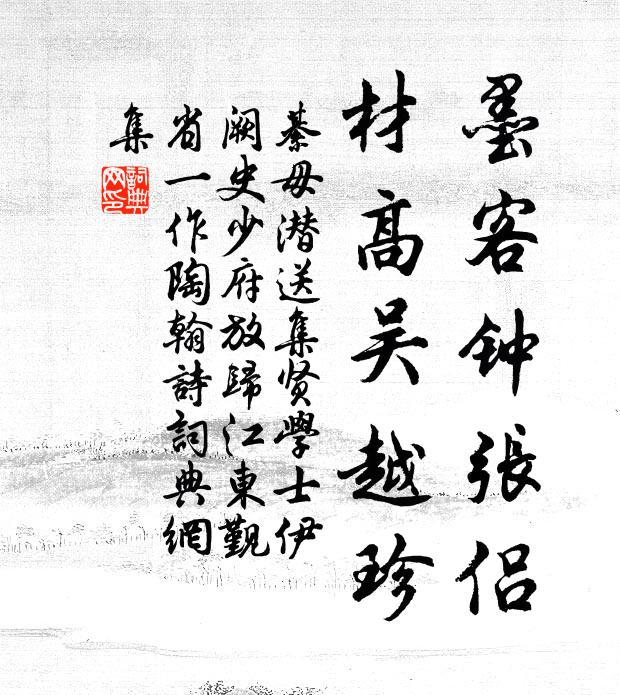 墨客钟張侣
材高吴越珍
綦毋潜送集贤學士伊
阙史少府放歸江東觐
省一作陶翰詩詞典網
集
詞典网印